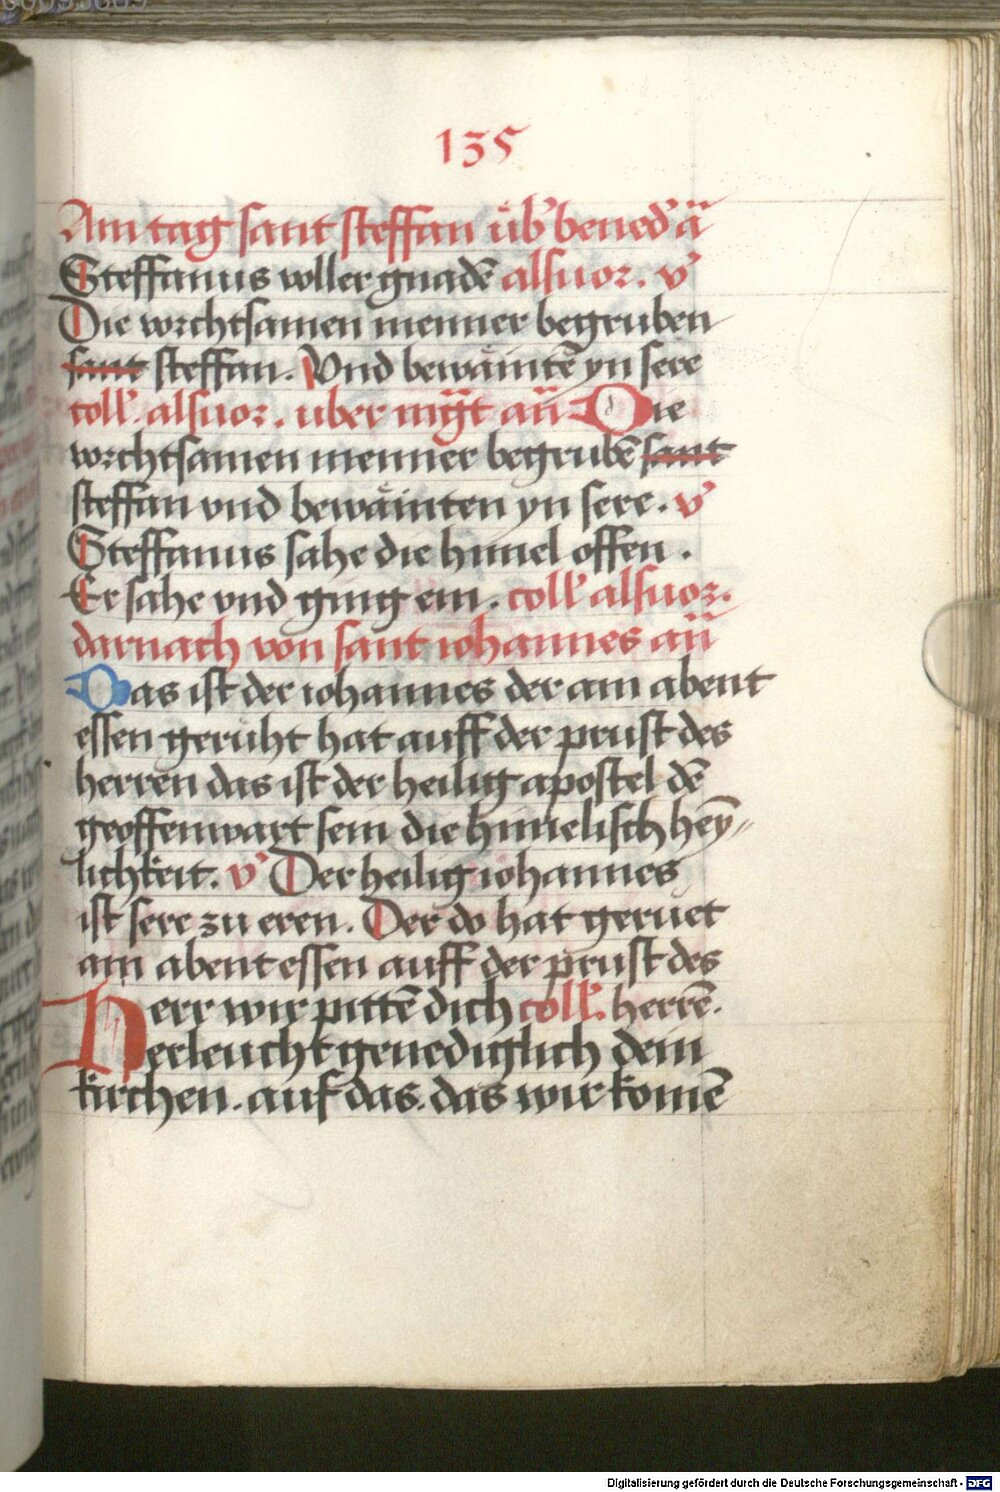 135
Am tag sant steffan üb' bened' ā
Steffanus voller gnadē als uor. v'
Die vorchtsamen menner begruben
sant steffan. Vnd bewäintē yn sere
coll'. als uor. uber mgt an̄ Die
vorchtsamen menner begrubē sant
steffan vnd bewäinten yn sere. v'
Steffanus sahe die himel offen.
Er sahe vnd ging ein. coll' als uor.
darnach von sant iohannes an̄
Das ist der iohannes der am abent
essen gerüht hat auff der prust des
herren das ist der heilig apostel dē
geoffenwart sein die himelisch hey̅⸗
lichkeit. v' Der heilig iohannes
ist sere zu eren. Der do hat geruet
am abent essen auff der prust des
Herr wir pittē dich coll'. herrē.
erleucht genediglich dein
kirchen. auf das. das wir komē
Digitalisierung gefördert durch die Deutsche Forschungsgemeinschaft - DFG